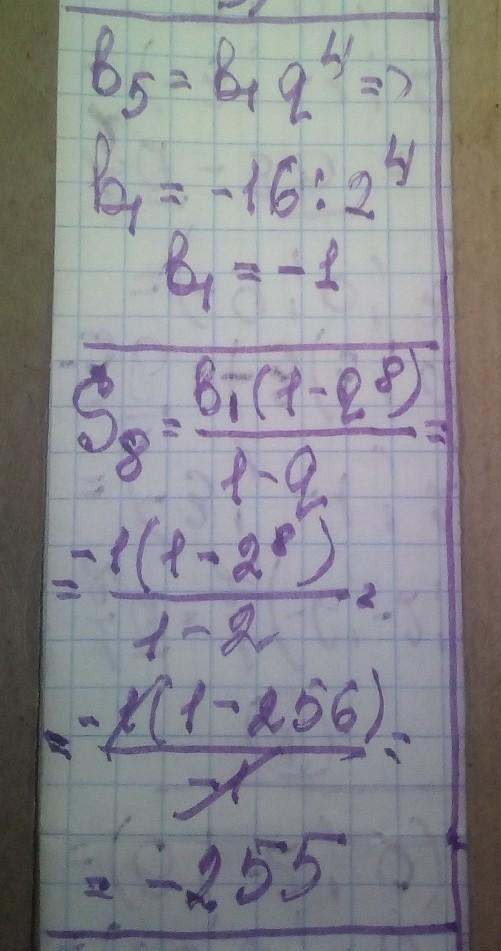 b₅ = b₁ q⁴ =>
b₁ = -16 : 2⁴
b₁ = -1
S₈ = b₁(1-q⁸) / 1-q =
= -1(1-2⁸) / 1-2 =
= -1(1-256) / -1 =
= -255